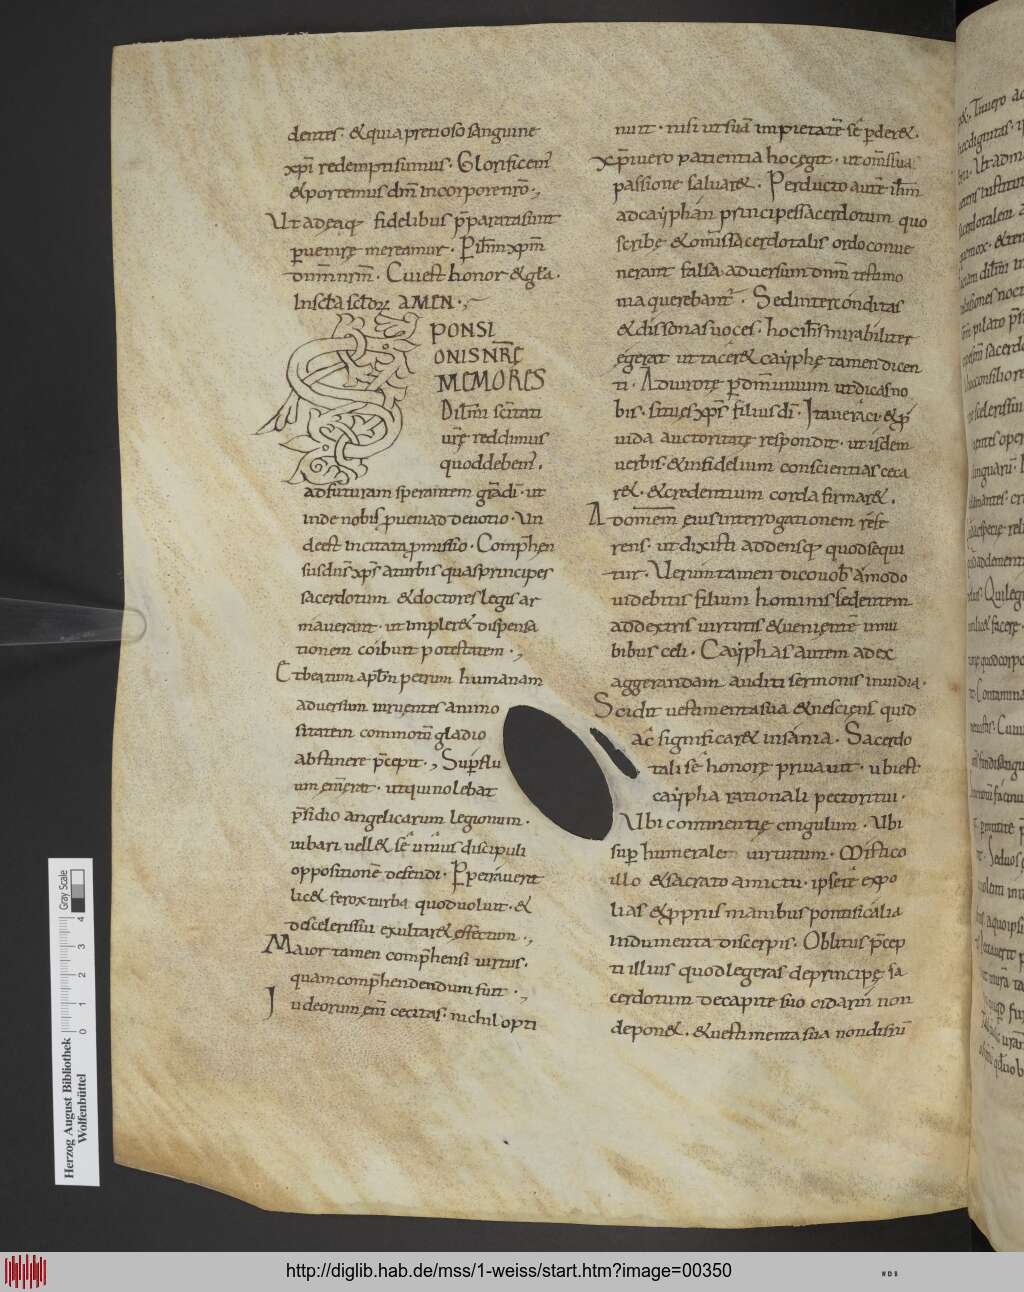 dentes. & quia pretioso sanguine
xp̄i redempti sumus. Glorificem̄
& portemus dm̄ in corpore nr̄o.,
Ut ad ea q; fidelibus p̄parata sunt
puenire mereamur. P ih̄m xp̄m
dnm̄ nr̄m. Cui est honor & gl̄a.
In scl̄a scl̄orū AMEN.,
SPONSI
ONIS NR̄Ę
MEMORES
Dil̄mi scītati
urę reddimus
quod debem̄.
ad futuram sperantem grādi. ut
inde nobis pueniad deuotio. un
deest incitata pmissio. Compħen
sus dn̄s xp̄s a turbis quas principes
sacerdotum & doctores legis ar
mauerant. ut impler& dispensa
tionem coibuit potestatem.,
Et beatum apl̄m petrum humanam
aduersum iruentes animo
sitatem commotū gladio
abstinere p̄cepit., Supflu
um em̄ erat. ut qui nolebat
p̄sidio angelicarum legionum.
iubari uell& se unius discipuli
oppositione defendi. Ppetrauerit
lic& ferox turba quod uoluit. &
de scelerissui exultar& effectum.,
Maior tamen compħensi uirtus.
quam compħendendum fuit.,
Iudeorum em̄ cecitas. nichil opti
nuit. nisi ut suā impietatē se pder&.
xp̄i uero patientia hoc egit. ut om̄s sua
passione saluar&. Perducto autē ih̄m
ad cayphan principes sacerdotum quo
scribę & om̄s sacerdotalis ordo conue
nerant falsa aduersum dnm̄ testimo
nia querebant. Sed inter conditas
& dissonas uoces. hoc ih̄s mirabiliter
egerat ut tacer& cayphę tamen dicen
ti. Adiuro te p dm̄ uiuum ut dicas no
bis. si tu es xp̄s filius dī. Ita ueraci &p
uida auctoritate respondit. ut isdem
uerbis. & infidelium conscientias ceca
r&. & credentium corda firmar&.
Ad omēm eius interrogationem refe
rens. ut dixisti addens q; quod sequi
tur. Uerumtamen dico uob amodo
uidebitis filium hominis sedentem
ad dextris uirtutis & uenientē in nu
bibus celi. Cayphas autem ad ex
aggerandam auditi sermonis inuidia.
Scidit uestimenta sua & nesciens quid
ac significar& insania. Sacerdo
tali se honore priuauit. ubi est
caypha rationali pectoritui.
Ubi continentię cingulum. Ubi
sup humerale uirtutum. Mistico
illo & sacrato amictu. ipse te expo
lias & pprus manibus pontificalia
indumenta discerpis. Oblitus p̄cep
ti illius quod legeras de principę sa
cerdotum de capite suo cidarim non
depon&. & uestimenta sua non disru
Herzog August Bibliothek
Wolfenbüttel
Gray Scale
0 1 2 3 4
http://diglib.hab.de/mss/1-weiss/start.htm?image=00350